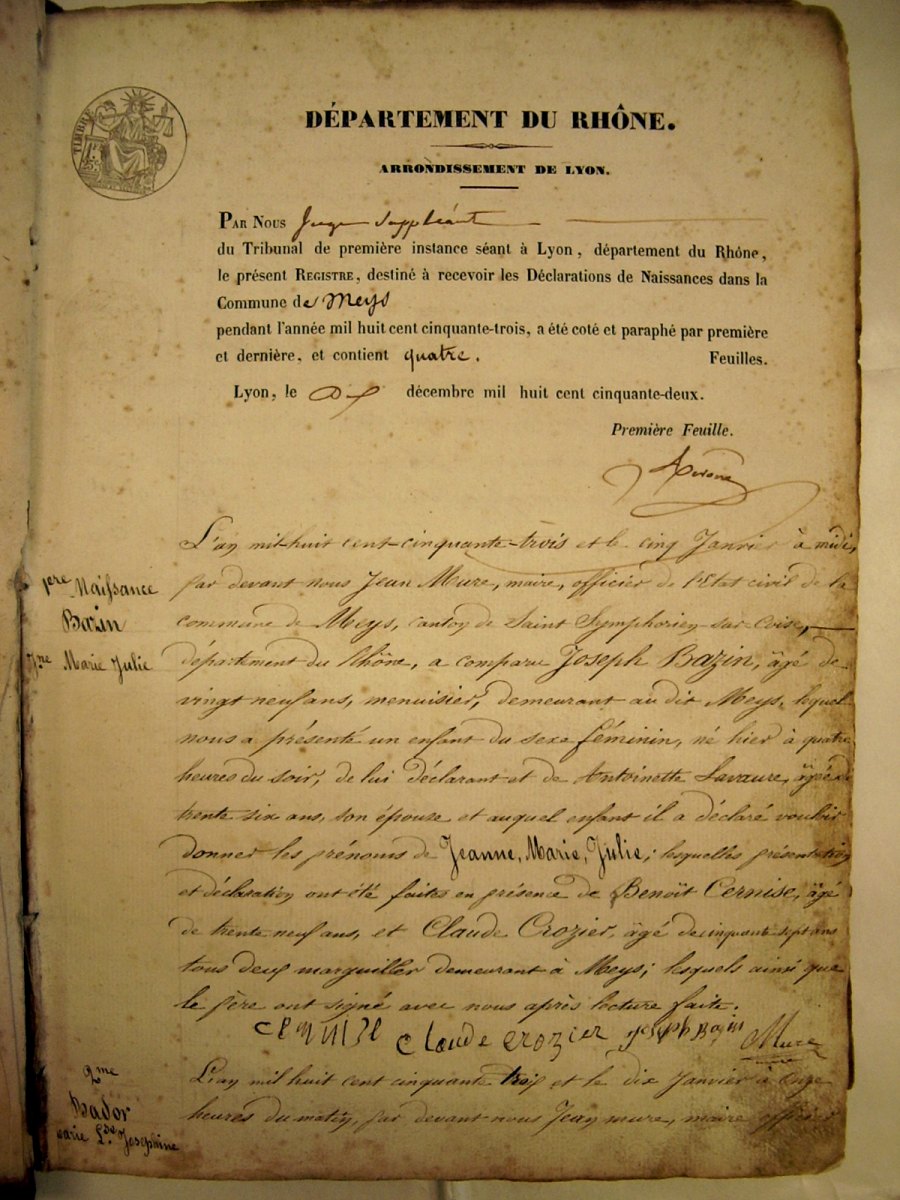 TIMBRE
DÉPARTEMENT DU RHÔNE.
ARRONDISSEMENT DE LYON.
PAR NOUS Juge Suppléant
du Tribunal de première instance séant à Lyon, département du Rhône,
le présent REGISTRE, destiné à recevoir les Déclarations de Naissances dans la
Commune de Meys
pendant l'année mil huit cent cinquante-trois, a été coté et paraphé par première
et dernière, et contient quatre. Feuilles.
Lyon, le décembre mil huit cent cinquante-deux.
Première Feuille.
L'an mil-huit cent-cinquante-trois et le cinq Janvier à midi,
par devant nous Jean Mure, maire, officier de l'Etat civil de la
commune de Meys, canton de Saint Symphorien-sur-Coise,
département du Rhône, a comparu Joseph Bazin, âgé de
vingt neuf ans, menuisier, demeurant au dit Meys, lequel
nous a présenté un enfant du sexe féminin, né hier à quatre
heures du soir, de lui déclarant et de Antoinette Lavaure, âgée de
trente six ans, son épouse et auquel enfant il a déclaré vouloir
donner les prénoms de Jeanne, Marie, Julie; lesquelles présentation
et déclaration ont été faites en présence de Benoît Cernise, âgé
de trente neuf ans, et Claude Crozier, âgé de cinquante sept ans
tous deux marguiller demeurant à Meys; lesquels ainsi que
le père ont signé avec nous après lecture faite.
1ère Naissance
Bazin
Jne Marie Julie
Claude crozier joseph Bazin Mure
L'an mil huit cent cinquante trois et le dix Janvier à onze
heures du matin, par devant nous Jean mure, maire officier
2me
Badór
marie Lse Josephine